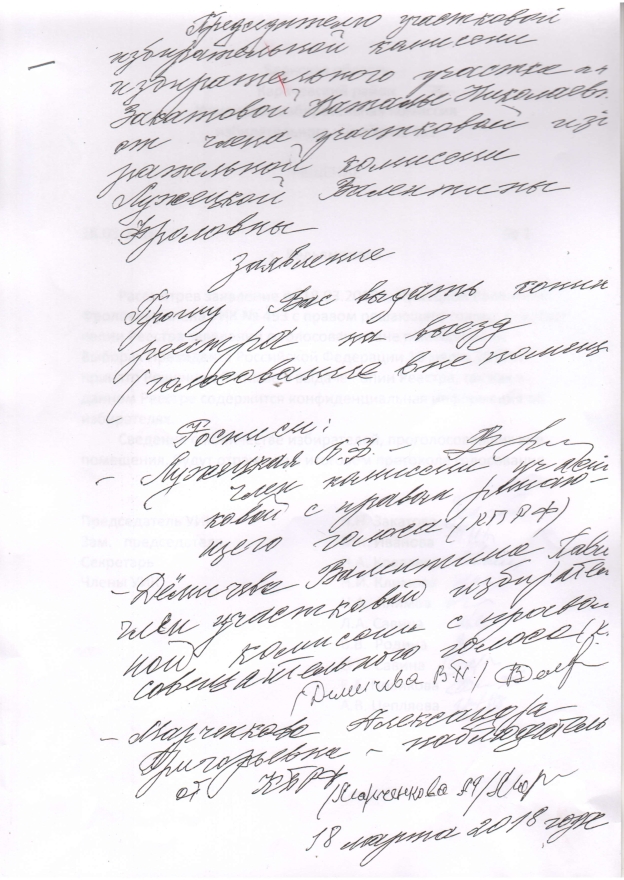 Председателю участковой
избирательной комиссии
избирательного участка
Закатовой Натальи Николаевн
от члена участковой изб
рательной комиссии
Лужецкой Валентины
Фроловны
Заявление
Прошу Вас выдать копии
реестра на выезд
(голосование вне помещ
Росписи:
- Лужецкая В.Ф.
член комиссии участ
ковой с правом решаю-
щего голоса (КПРФ)
- Дёмичева Валентина Павл
член участковой избирател
ной комиссии с правом
совещательного голоса (к.
(Демичева В.П.)
- Марченкова Александра
Григорьевна - наблюдатель
от КПРФ
(Марченкова АГ)
18 марта 2018 года